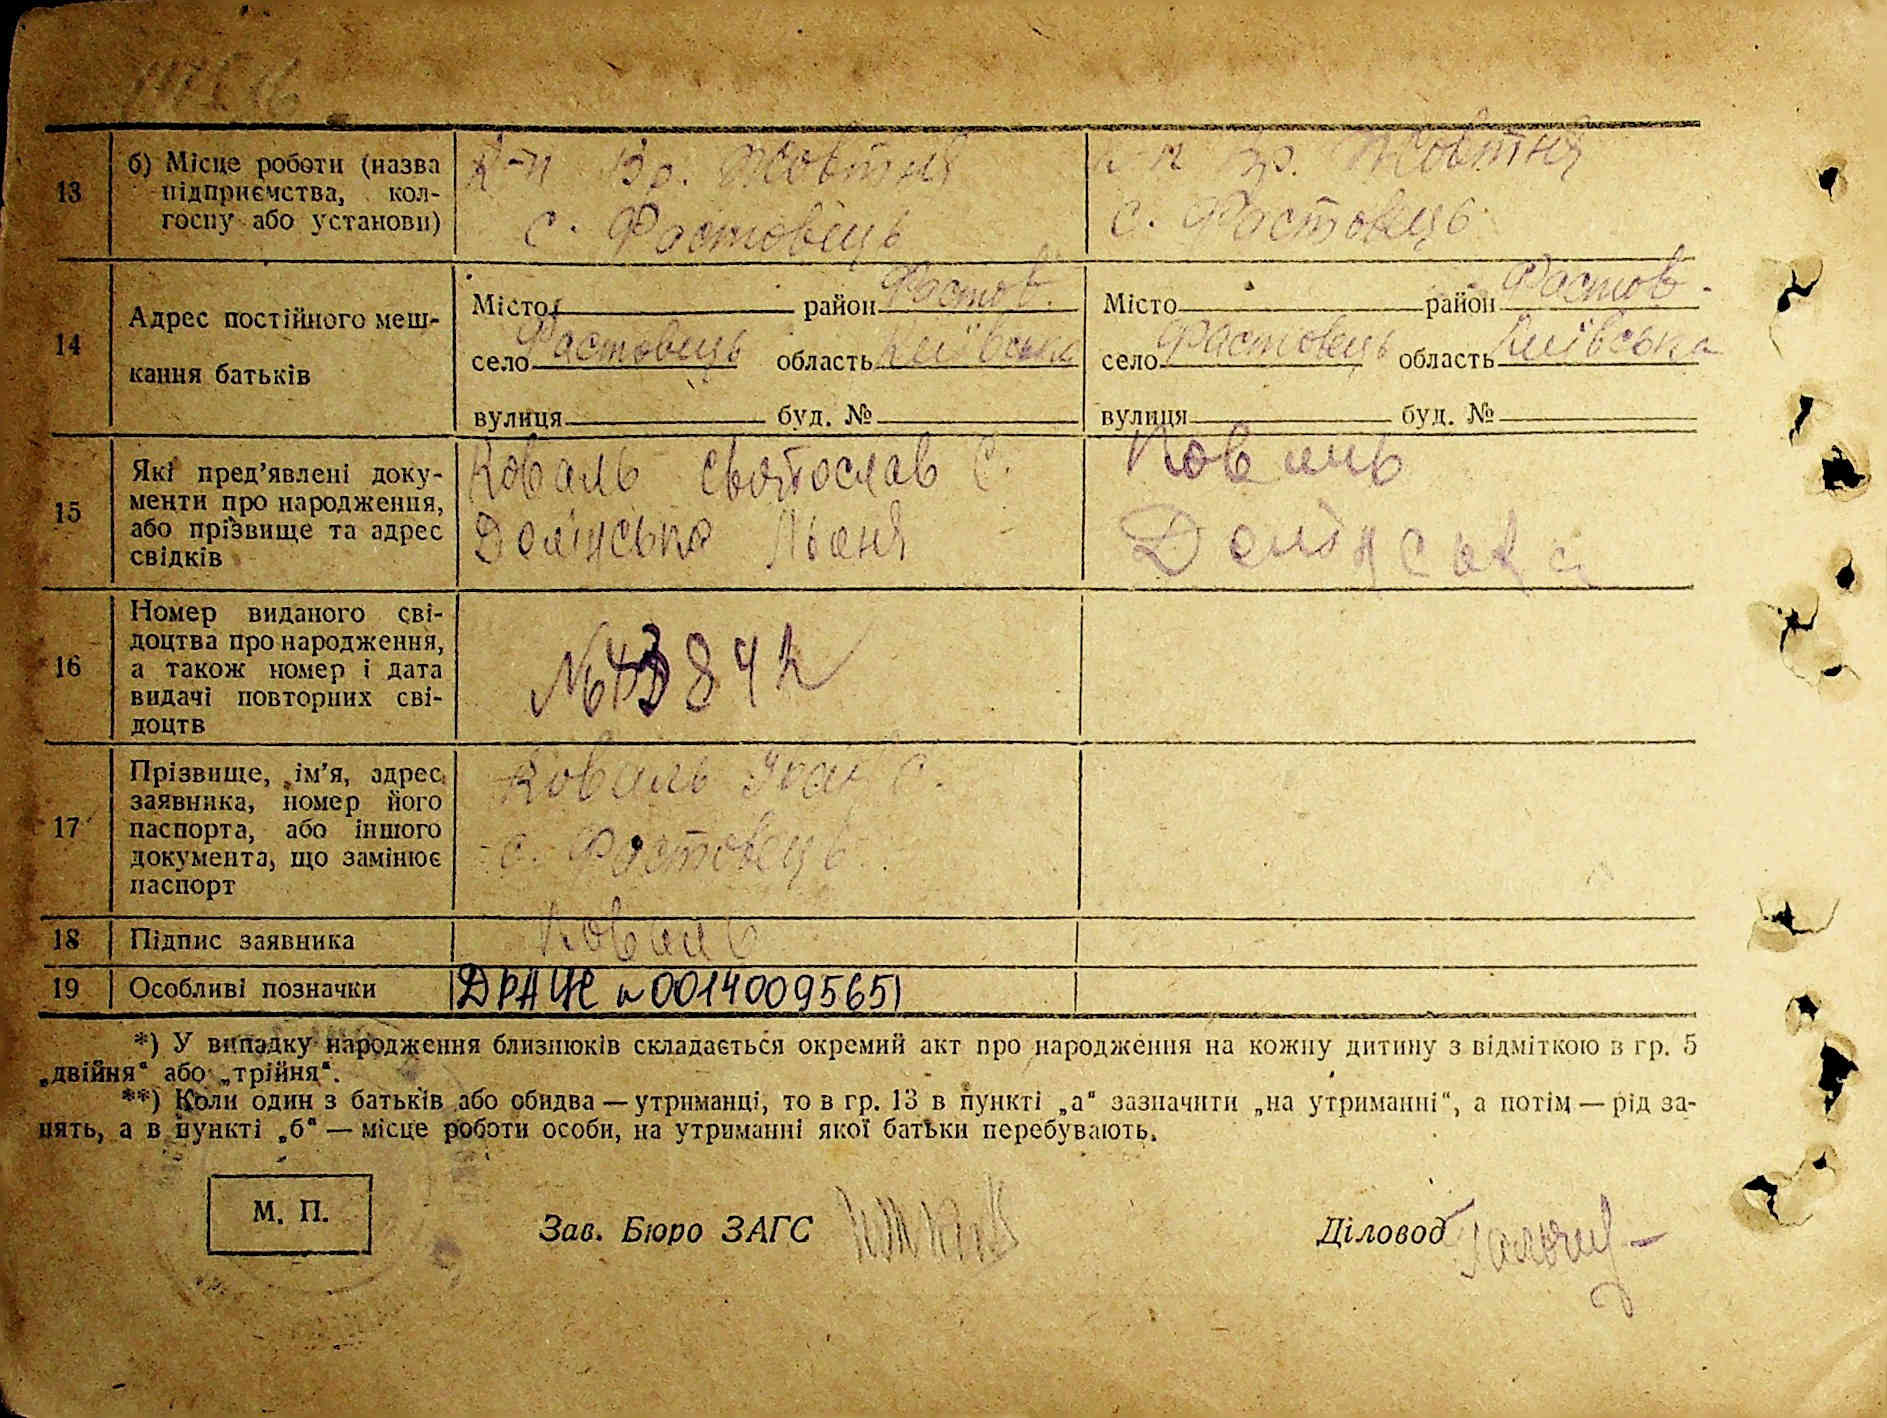 13
б) Місце роботи (назва
підприємства, кол-
госпу або установи)
к-п Зр. Жовтня
с. Фастовець
к-п Зр. Жовтня
с. Фастовець
14
Адрес постійного меш-
кання батьків
Місто район Фастов.
село Фастовець область Київська
вулиця буд. №
Місто район Фастов.
село Фастовець область Київська
вулиця буд. №
15
Які пред’явлені доку-
менти про народження,
або прізвище та адрес
свідків
Коваль Святослав С.
Долінська
Коваль
Долінська
16
Номер виданого сві-
доцтва про народження,
а також номер і дата
видачі повторних сві-
доцтв
17
Прізвище, ім’я, адрес
заявника, номер його
паспорта, або іншого
документа, що замінює
паспорт
Коваль Іван С.
с. Фастовець
18
Підпис заявника
Коваль
19
Особливі позначки
ДРАЦС № 00140095651
*) У випадку народження близнюків складається окремий акт про народження на кожну дитину з відміткою в гр. 5
„двійня“ або „трійня“.
**) Коли один з батьків або обидва — утриманці, то в гр. 13 в пункті „а“ зазначити „на утриманні“, а потім — рід за-
нять, а в пункті „б“ — місце роботи особи, на утриманні якої батьки перебувають.
М. П.
Зав. Бюро ЗАГС
Діловод